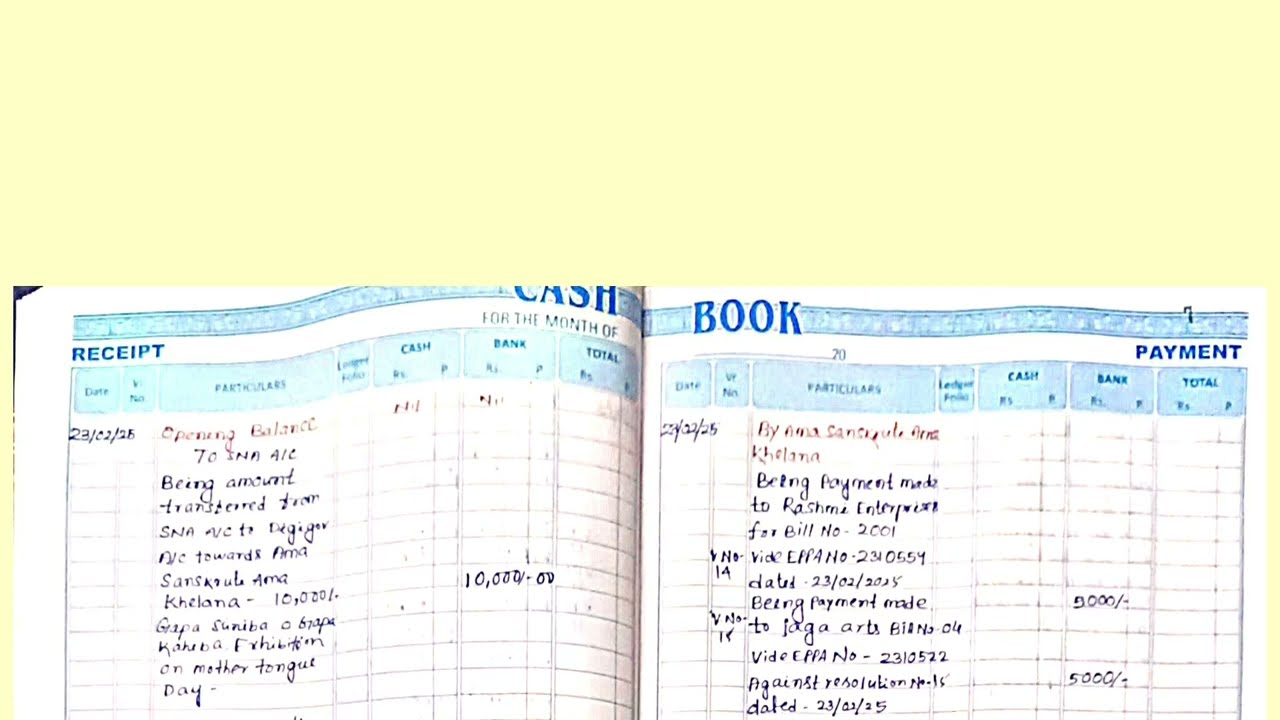 CASH
FOR THE MONTH OF
RECEIPT
Date Vr No. PARTICULARS Ledger Folio CASH Rs. P BANK Rs. P TOTAL Rs P
Nil Nil
23/02/25 Opening Balance
To SNA A/C
Being amount
transferred from
SNA A/C to Degigov
A/C towards Ama
Sanskrute Ama 10,000/-00
Khelana - 10,000/-
Gapa Suniba o Gapa
Kahiba Exhibition
on mother tongue
Day -
BOOK
7
20
PAYMENT
Date Vr No. PARTICULARS Ledger Folio CASH Rs P BANK Rs. P TOTAL Rs P
23/02/25 By Ama Sanskrute Ama
Khelana
Being Payment made
to Rashmi Enterprises
for Bill No - 2001
V No- 14 Vide EPPA No - 2310559
dated - 23/02/2025
Being Payment made 5000/-
V No- 15 to jaga arts Bill No- 04
Vide EPPA No - 2310522
Against resolution No-15 5000/-
dated - 23/02/25